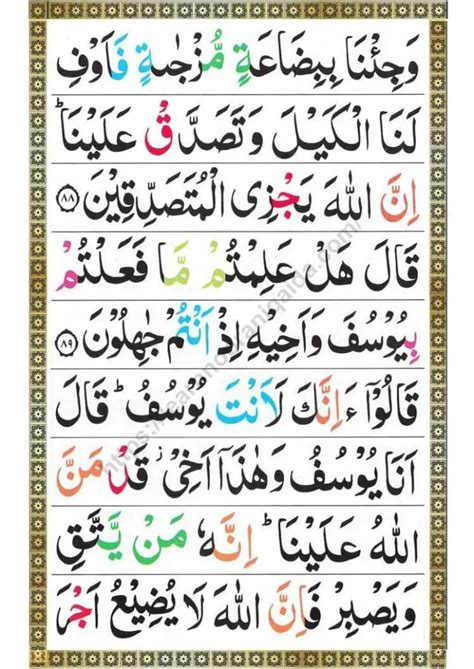 وَجِئْنَا بِبِضَاعَةٍ مُّزْجٰىةٍ فَاَوْفِ
لَنَا الْكَيْلَ وَتَصَدَّقْ عَلَيْنَا ؕ
اِنَّ اللّٰهَ يَجْزِى الْمُتَصَدِّقِيْنَ ﴿۸۸﴾
قَالَ هَلْ عَلِمْتُمْ مَّا فَعَلْتُمْ
بِيُوْسُفَ وَاَخِيْهِ اِذْ اَنْتُمْ جٰهِلُوْنَ ﴿۸۹﴾
قَالُوْٓا ءَاِنَّكَ لَاَنْتَ يُوْسُفُ ؕ قَالَ
اَنَا يُوْسُفُ وَهٰذَاۤ اَخِىْ ؗ قَدْ مَنَّ
اللّٰهُ عَلَيْنَا ؕ اِنَّهٗ مَنْ يَّتَّقِ
وَيَصْبِرْ فَاِنَّ اللّٰهَ لَا يُضِيْعُ اَجْرَ